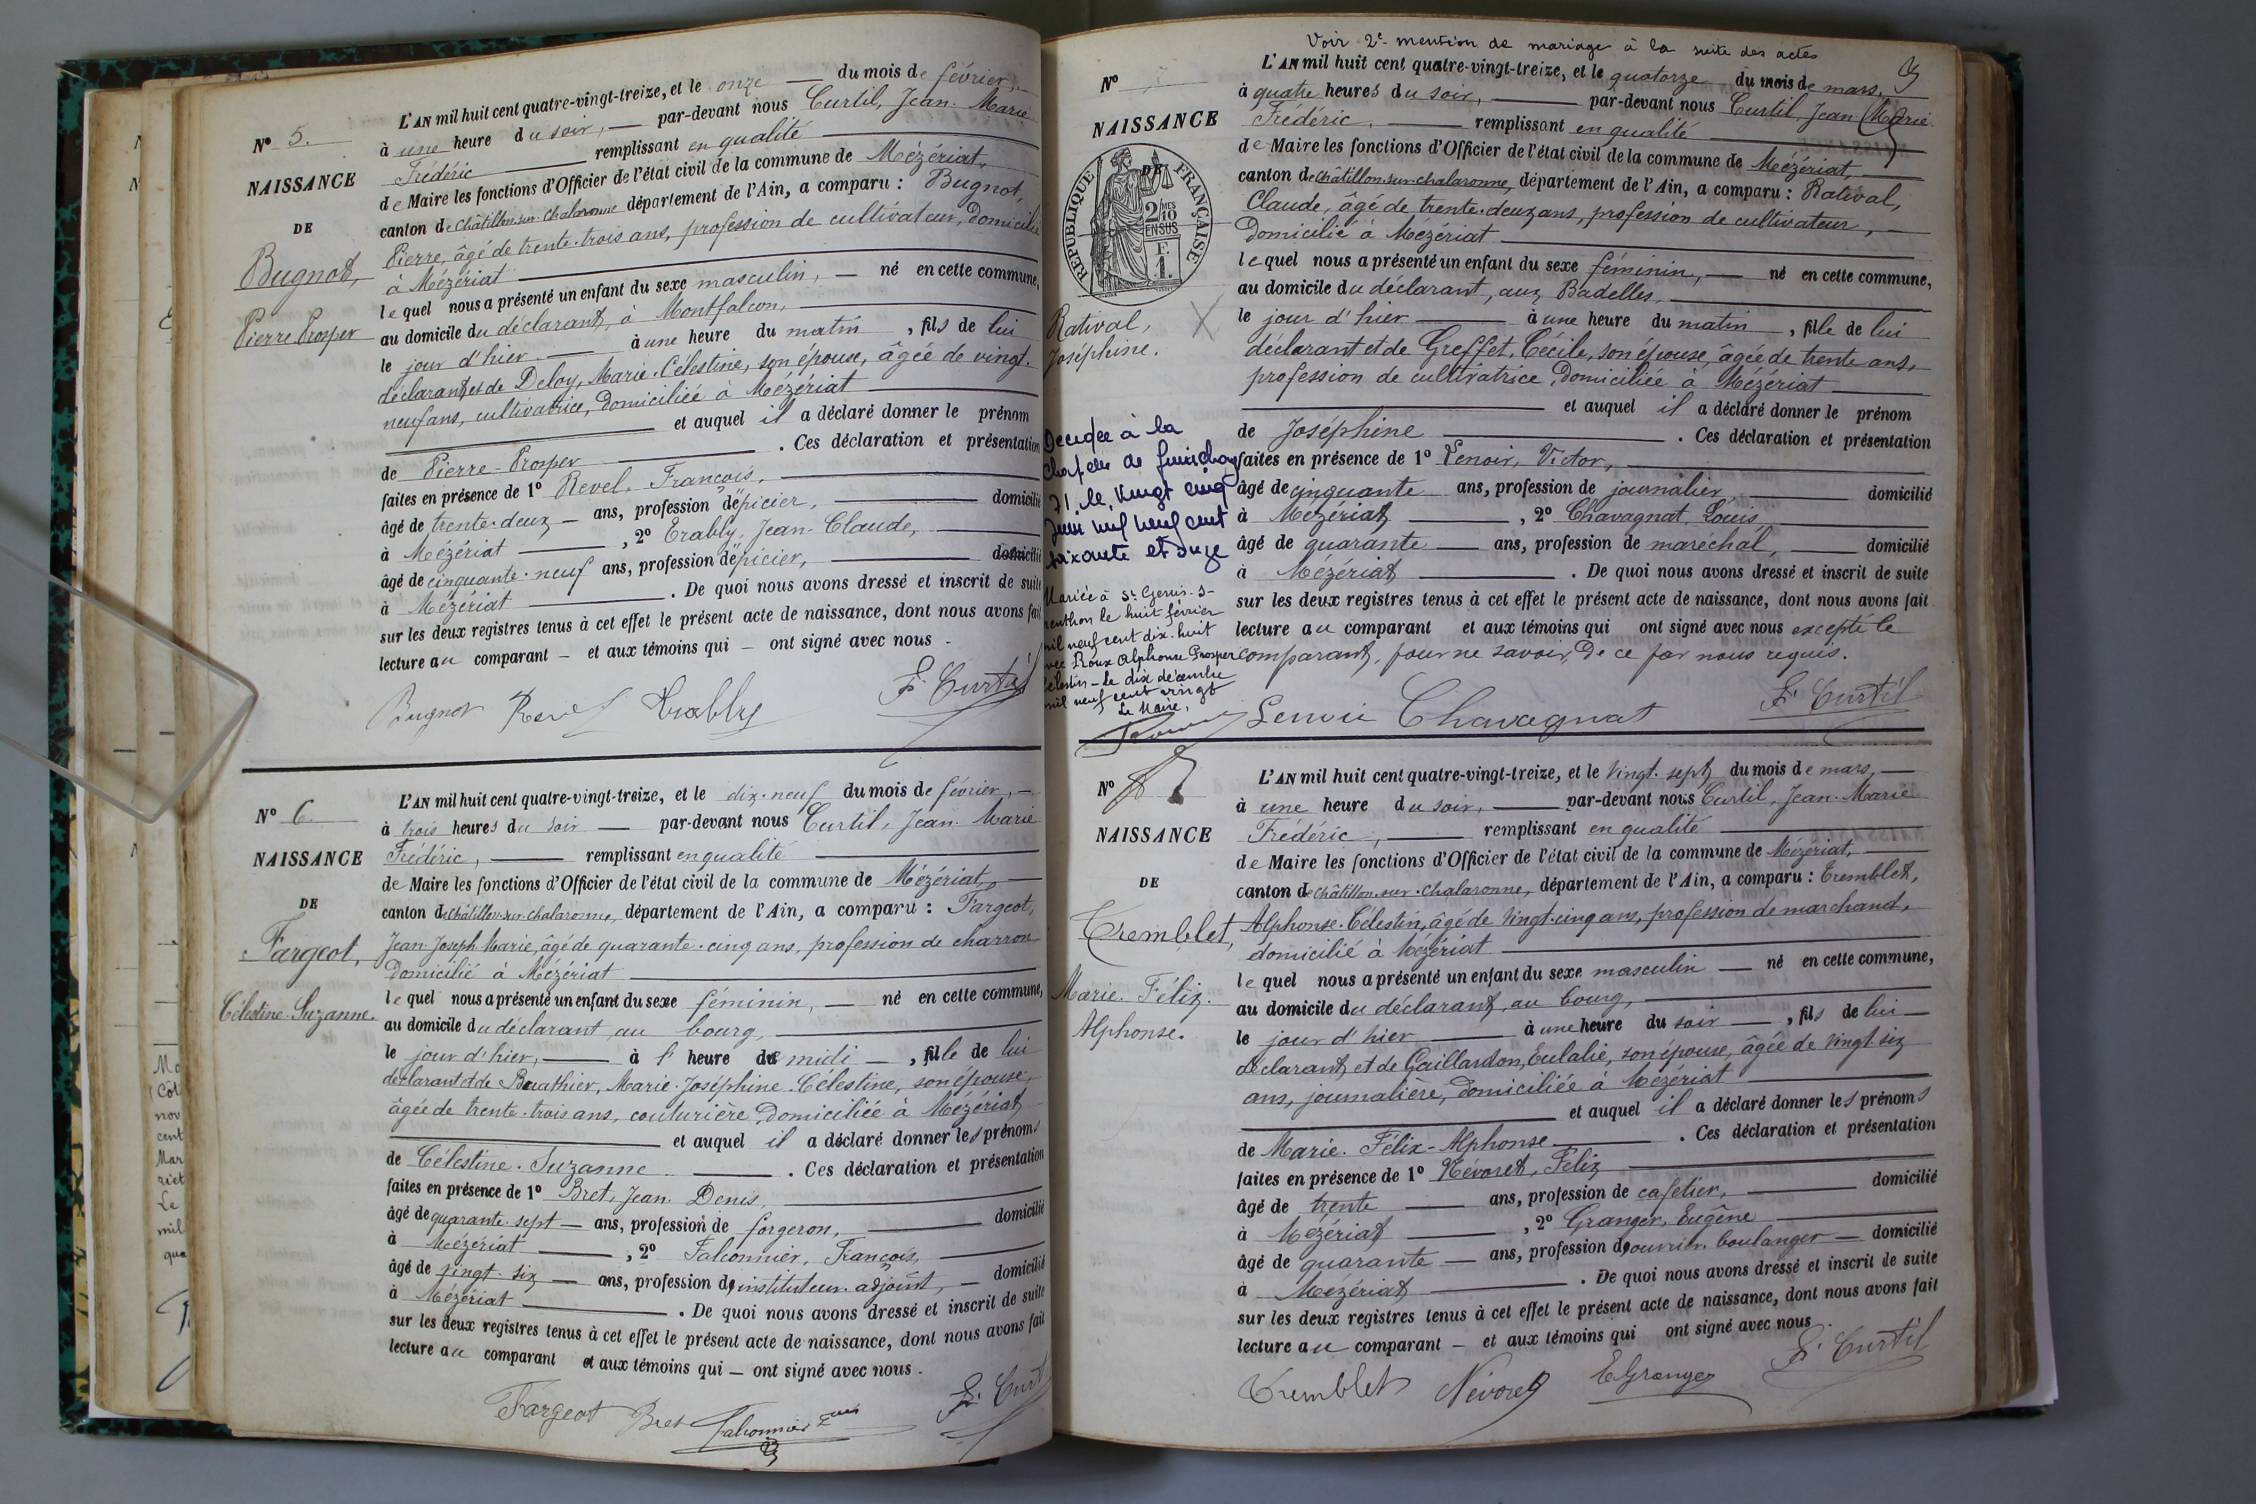 N° 5.
NAISSANCE
DE
Bugnot,
Pierre Prosper
L'AN mil huit cent quatre-vingt-treize, et le onze du mois de février,
à une heure du soir, par-devant nous Curtil, Jean-Marie
Frédéric remplissant en qualité
de Maire les fonctions d'Officier de l'état civil de la commune de Mézériat,
canton de Châtillon-sur-Chalaronne département de l'Ain, a comparu : Bugnot,
Pierre, âgé de trente-trois ans, profession de cultivateur, domicilié
à Mézériat
lequel nous a présenté un enfant du sexe masculin, né en cette commune,
au domicile du déclarant, à Montfalcon,
le jour d'hier à une heure du matin, fils de lui
déclarant et de Deloy, Marie-Célestine, son épouse, âgée de vingt-
neuf ans, cultivatrice, domiciliée à Mézériat
et auquel il a déclaré donner le prénom
de Pierre-Prosper. Ces déclaration et présentation
faites en présence de 1° Revel, François,
âgé de trente-deux ans, profession d'épicier, domicilié
à Mézériat, 2° Erably, Jean-Claude,
âgé de cinquante-neuf ans, profession d'épicier, domicilié
à Mézériat. De quoi nous avons dressé et inscrit de suite
sur les deux registres tenus à cet effet le présent acte de naissance, dont nous avons fait
lecture au comparant et aux témoins qui ont signé avec nous.
Bugnot Revel Erably F. Curtil
N° 6.
NAISSANCE
DE
Fargeot,
Célestine-Suzanne.
L'AN mil huit cent quatre-vingt-treize, et le dix-neuf du mois de février,
à trois heures du soir par-devant nous Curtil, Jean-Marie
Frédéric, remplissant en qualité
de Maire les fonctions d'Officier de l'état civil de la commune de Mézériat,
canton de Châtillon-sur-Chalaronne, département de l'Ain, a comparu : Fargeot,
Jean-Joseph-Marie, âgé de quarante-cinq ans, profession de charron
domicilié à Mézériat
lequel nous a présenté un enfant du sexe féminin, né en cette commune,
au domicile du déclarant, au bourg,
le jour d'hier, à l'heure de midi, fille de lui
déclarant et de Bouathier, Marie-Joséphine-Célestine, son épouse,
âgée de trente-trois ans, couturière, domiciliée à Mézériat
et auquel il a déclaré donner les prénoms
de Célestine-Suzanne. Ces déclaration et présentation
faites en présence de 1° Bret, Jean-Denis,
âgé de quarante-sept ans, profession de forgeron, domicilié
à Mézériat, 2° Falconnier, François,
âgé de vingt-six ans, profession d'instituteur-adjoint, domicilié
à Mézériat. De quoi nous avons dressé et inscrit de suite
sur les deux registres tenus à cet effet le présent acte de naissance, dont nous avons fait
lecture au comparant et aux témoins qui ont signé avec nous.
Fargeot Bret Falconnier F. Curt
Voir 2e mention de mariage à la suite des actes
N°
NAISSANCE
DE
RÉPUBLIQUE FRANÇAISE
2/10MES
EN SUS
F.
1.
Ratival,
Joséphine.
Décédée à la
Chapelle de Guinchay
71, le vingt cinq
Juin mil neuf cent
soixante et onze
Mariée à St Genis-s-
Menthon le huit février
mil neuf cent dix-huit
avec Roux Alphonse Prosper
Célestin - Le dix décembre
mil neuf cent vingt
Le Maire,
L'AN mil huit cent quatre-vingt-treize, et le quatorze du mois de mars,
à quatre heures du soir, par-devant nous Curtil, Jean-Marie
Frédéric, remplissant en qualité
de Maire les fonctions d'Officier de l'état civil de la commune de Mézériat,
canton de Châtillon-sur-Chalaronne, département de l'Ain, a comparu : Ratival,
Claude, âgé de trente-deux ans, profession de cultivateur,
domicilié à Mézériat
lequel nous a présenté un enfant du sexe féminin, né en cette commune,
au domicile du déclarant, aux Badelles,
le jour d'hier à une heure du matin, fille de lui
déclarant et de Greffet, Cécile, son épouse, âgée de trente ans,
profession de cultivatrice, domiciliée à Mézériat
et auquel il a déclaré donner le prénom
de Joséphine. Ces déclaration et présentation
faites en présence de 1° Lenoir, Victor,
âgé de cinquante ans, profession de journalier, domicilié
à Mézériat, 2° Chavagnat, Louis,
âgé de quarante ans, profession de maréchal, domicilié
à Mézériat. De quoi nous avons dressé et inscrit de suite
sur les deux registres tenus à cet effet le présent acte de naissance, dont nous avons fait
lecture au comparant et aux témoins qui ont signé avec nous excepté le
comparant, pour ne savoir, de ce par nous requis.
Lenoir Chavagnat F. Curtil
N° 8
NAISSANCE
DE
Tremblet,
Marie-Félix-
Alphonse.
L'AN mil huit cent quatre-vingt-treize, et le vingt-sept du mois de mars,
à une heure du soir, par-devant nous Curtil, Jean-Marie
Frédéric, remplissant en qualité
de Maire les fonctions d'Officier de l'état civil de la commune de Mézériat,
canton de Châtillon-sur-Chalaronne, département de l'Ain, a comparu : Tremblet,
Alphonse-Célestin, âgé de vingt-cinq ans, profession de marchand,
domicilié à Mézériat
lequel nous a présenté un enfant du sexe masculin né en cette commune,
au domicile du déclarant, au bourg,
le jour d'hier à une heure du soir, fils de lui
déclarant, et de Gaillardon, Eulalie, son épouse, âgée de vingt-six
ans, journalière, domiciliée à Mézériat
et auquel il a déclaré donner les prénoms
de Marie-Félix-Alphonse. Ces déclaration et présentation
faites en présence de 1° Névoret, Félix
âgé de trente ans, profession de cafetier, domicilié
à Mézériat, 2° Granger, Eugène
âgé de quarante ans, profession d'ouvrier-boulanger domicilié
à Mézériat. De quoi nous avons dressé et inscrit de suite
sur les deux registres tenus à cet effet le présent acte de naissance, dont nous avons fait
lecture au comparant et aux témoins qui ont signé avec nous.
Tremblet Névoret E Granger F. Curtil